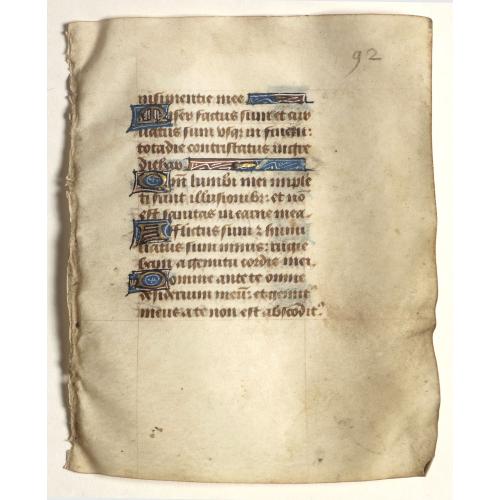 92
insipientie mee
Miser factus sum et cur
uatus sum usq; in finem:
tota die contristatus ingre
diebar
Qm̄ lumbi mei imple
ti sunt illusionibz: et nō
est sanitas in carne mea
Afflictus sum ⁊ humi
liatus sum nimis: rugie
bam a gemitu cordis mei
Domine ante te omne
desiderium meū: et gemit
meus a te non est abscōdit